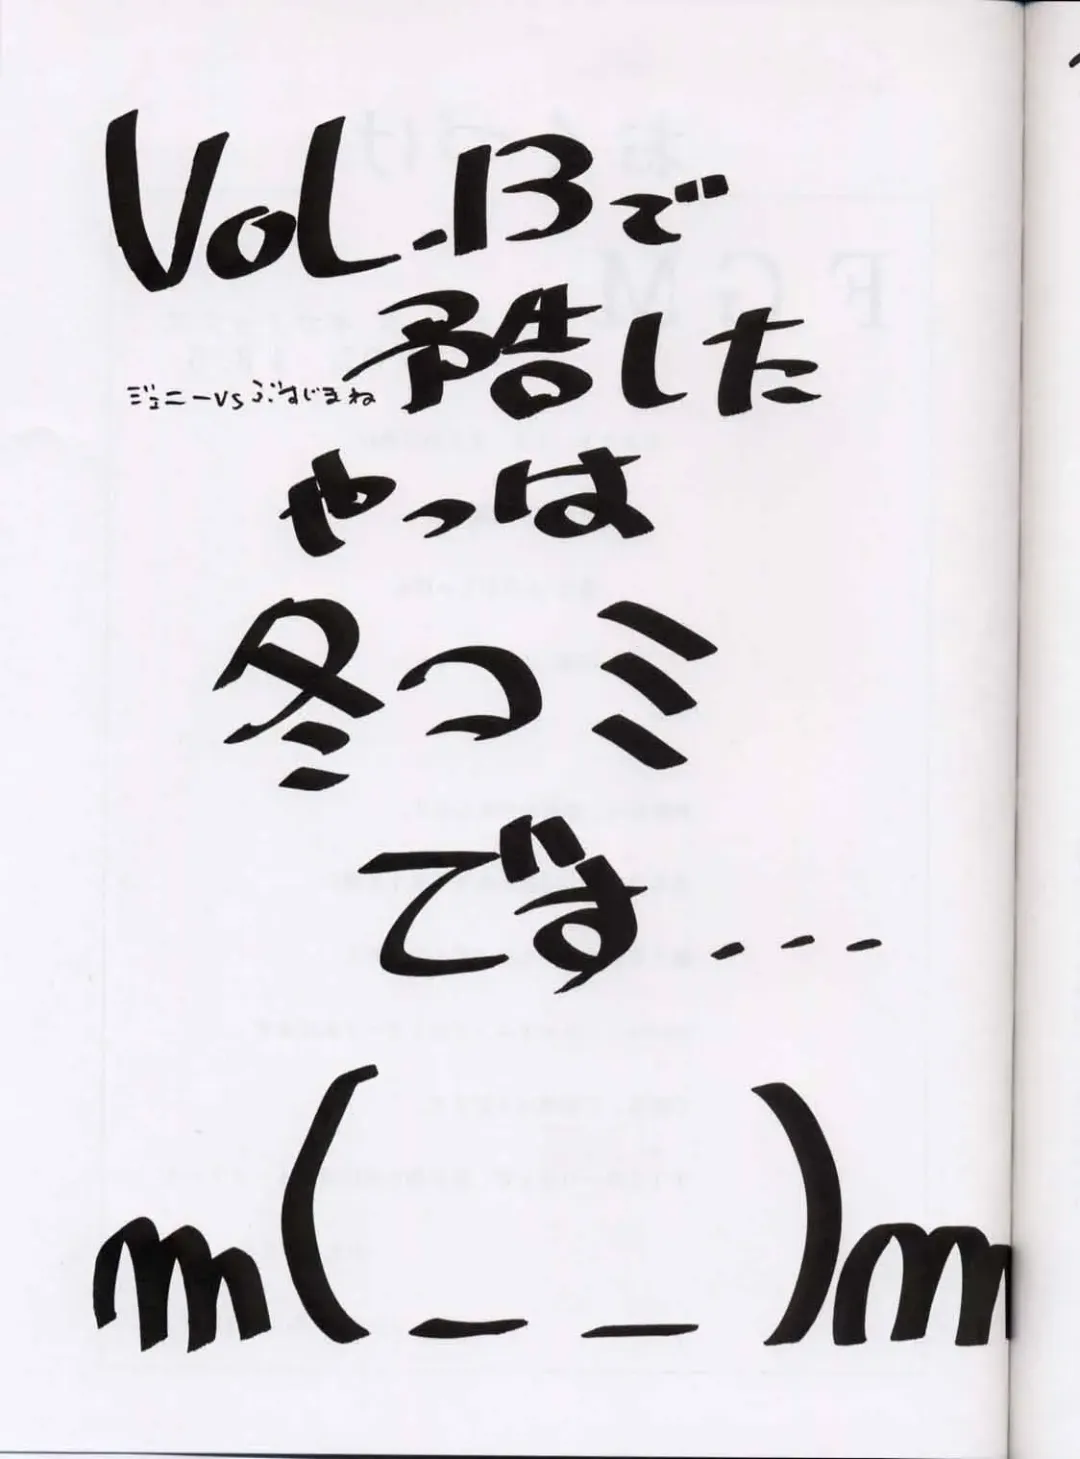 VoL.13で
予告した
ジェニーvsぶすじまね
やつは
冬コミ
です...
m(_ _)m